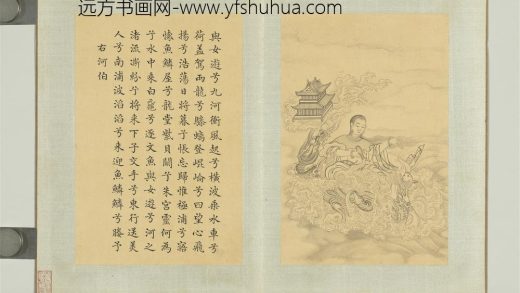 远方书画网-www.yfshuhua.com
與女遊兮九河衝風起兮橫波乘水車兮
荷蓋駕兩龍兮驂螭登崐崘兮四望心飛
揚兮浩蕩日將暮兮悵忘歸惟極浦兮寤
懷魚鱗屋兮龍堂紫貝闕兮朱宮靈何為
兮水中乘白黿兮逐文魚與女遊兮河之
渚流澌紛兮將來下子交手兮東行送美
人兮南浦波滔滔兮來迎魚鱗鱗兮媵予
右河伯